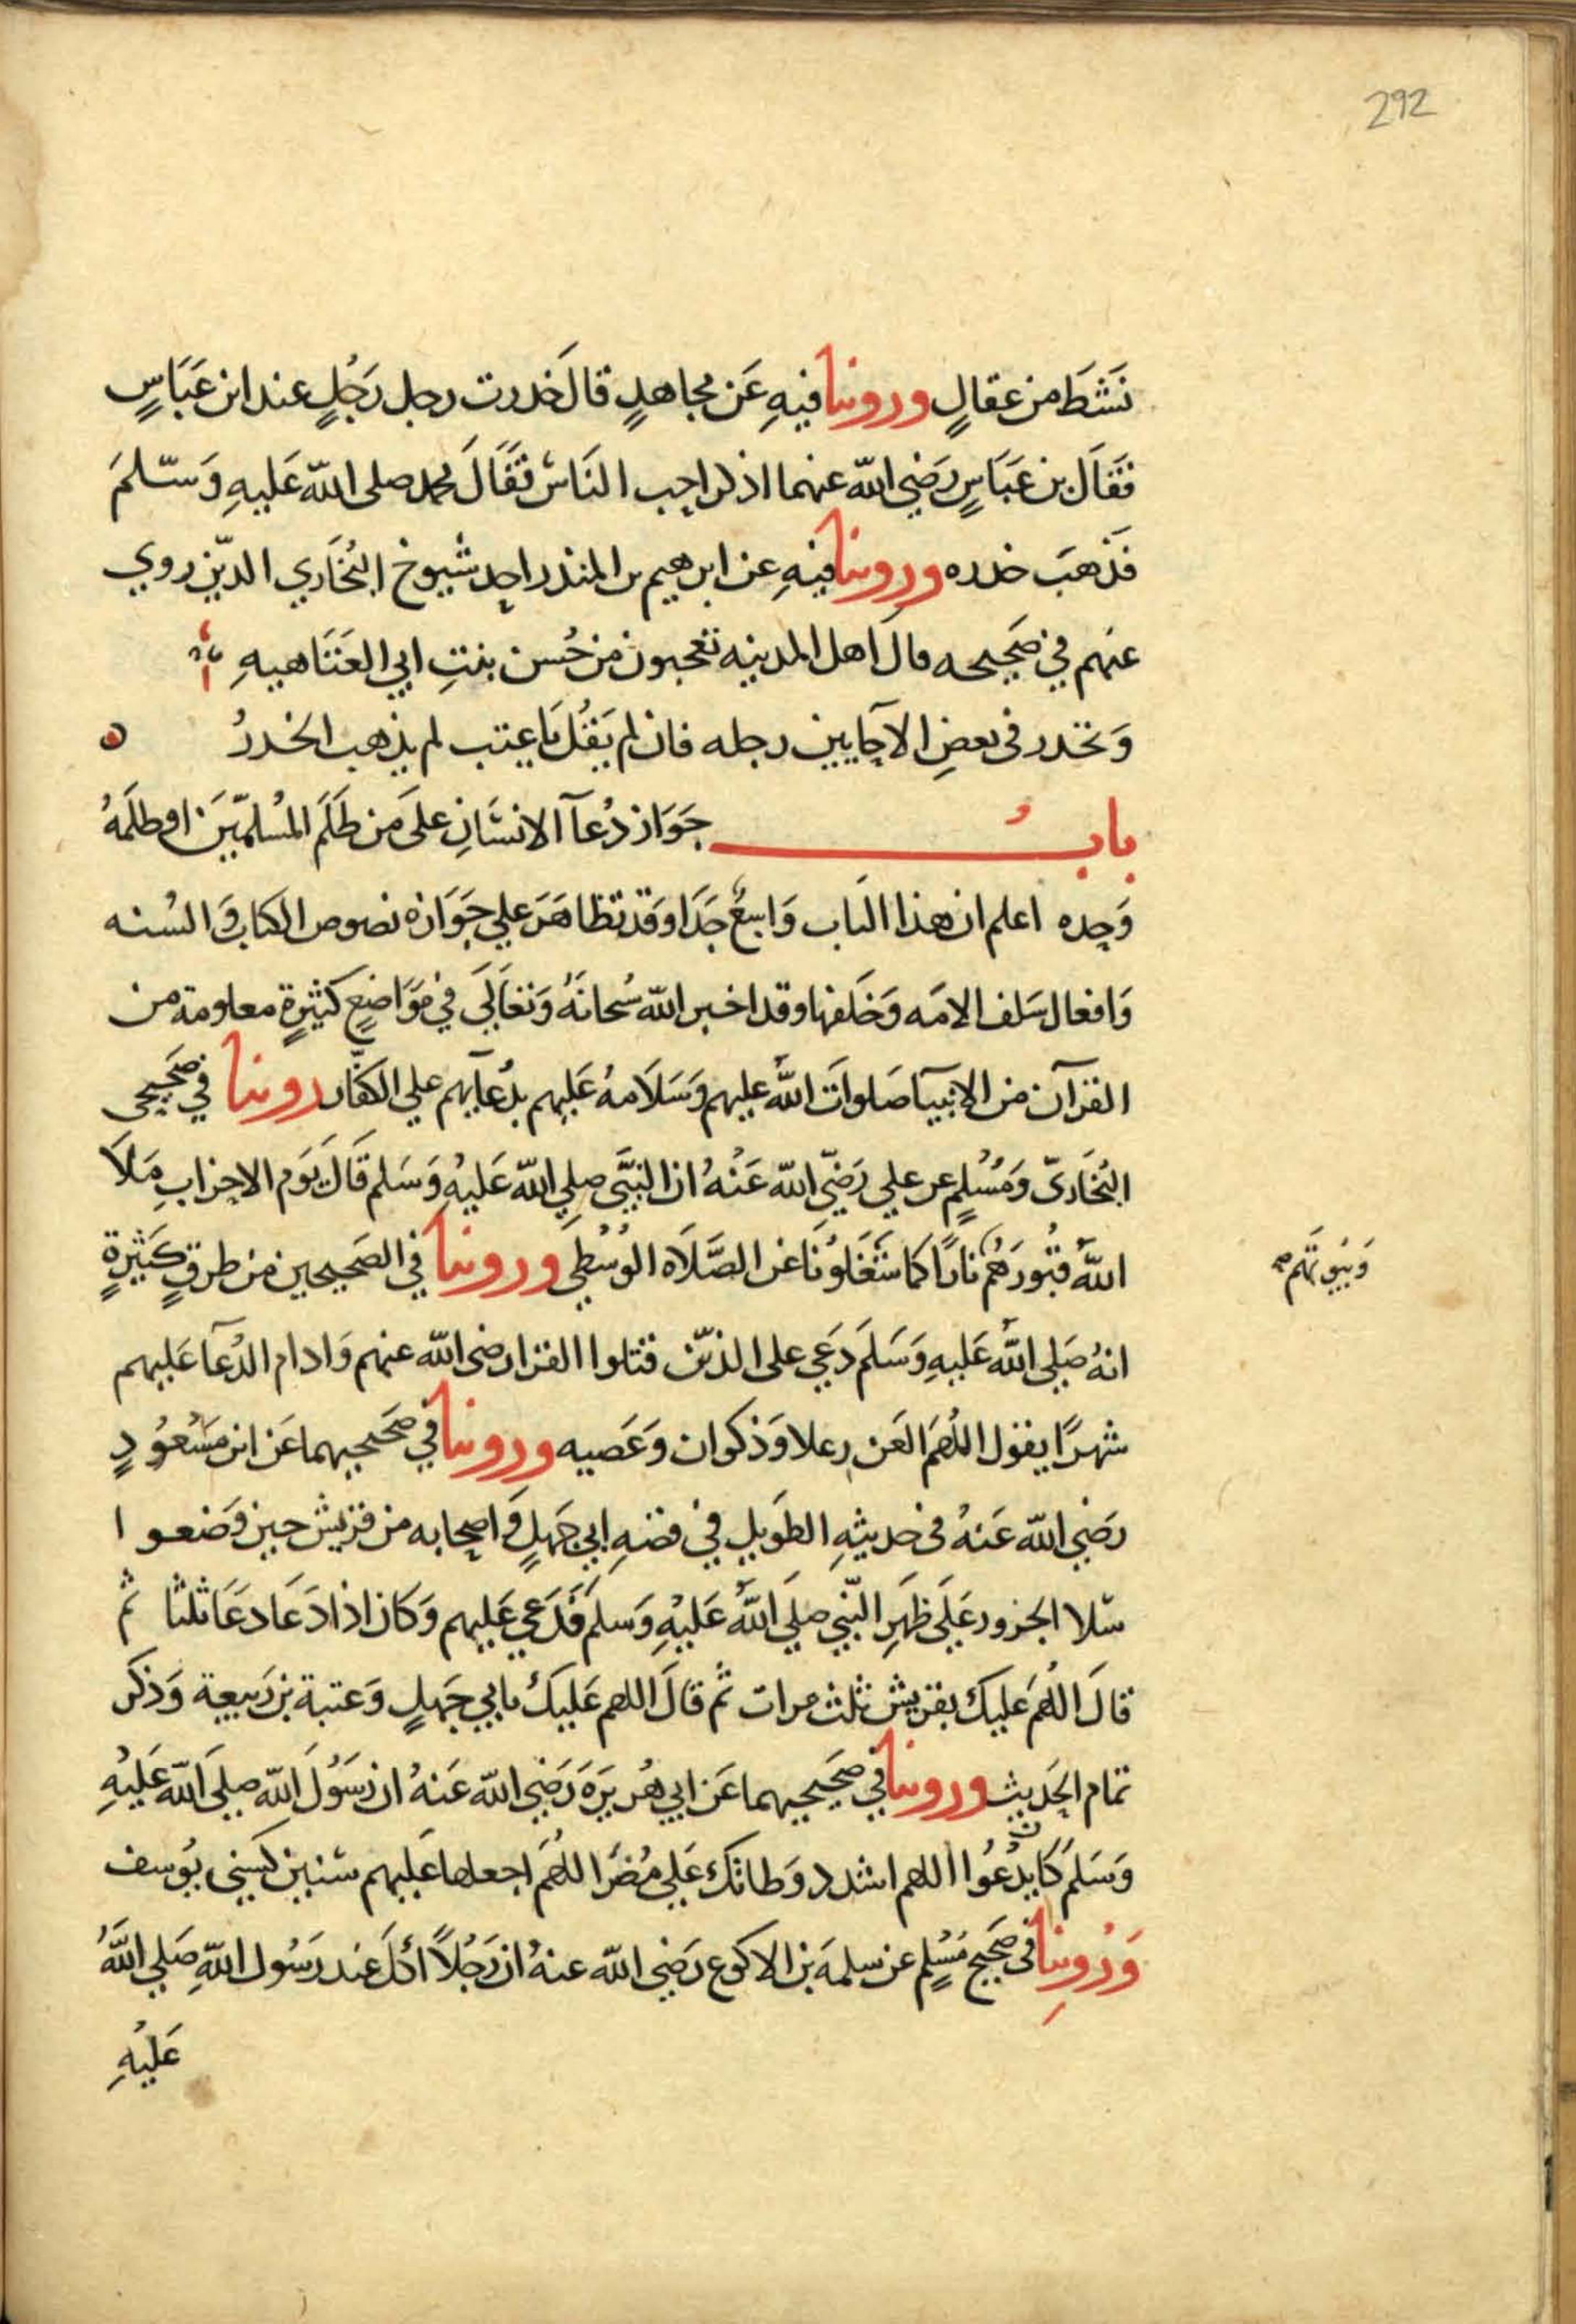 292
نَشَطَ من عقالٍ وروينا فيهِ عَن مجاهدٍ قالَ خدرت رجل رَجُلٍ عند ابن عَبَاسٍ
فقَالَ بن عَبَاسٍ رَضي الله عنهما اذكر احب النَاسْ فقَالَ محمد صلى الله عَليهِ وَسَّلمَ
فذهبَ خدره وروينا فيهِ عن ابرهيم بن المنذر احد شيوخ البُخَاري الدّين روي
عنهم في صَحيحه قال اهل المدينه تعجبون من حُسن بنتِ ابي العَتَاهيهِ
وَتخدر فى بعضِ الاحَايين رجله فان لم يَقُل يَا عتب لم يذهب الخدرُ ه
بابُ جَوَاز دُعآ الانسَانِ علىَ من ظلَمَ المُسلمّينَ او ظلمَهُ
وَحده اعلم ان هذا البَاب وَاسِعٌ جَدَا وَقد تظاهَرَ علي جَوَازه نصوص الكتاب وَالسُنه
وَافعال سَلف الامَه وَخَلفها وقد اخبر الله سُبحانَهُ وَتعَالَى في مَوَاضعٍ كثيرةٍ معلومة من
القرآن من الانبيآ صَلواتَ اللهُ عليهم وَسَلَامهُ عَليهم بدُعآيهم علي الكفّار روينا في صَحيحى
البُخَاريّ وَمُسْلمٍ عن علي رَضّي الله عَنْهُ ان النبَّي صلي الله عَليهْ وَسَلم قَالَ يَوَم الاحزابِ مَلَا
اللهُ قبُورَهُم نارًا كما شَغَلوُنَا عن الصَّلَاه الوُسْطيَ وروينا في الصَحيحين من طرقٍ كَثيرةٍ
وَبيُوتَهم صح
انهُ صَلي اللهُ عَليهِ وَسَلمَ دَعَي على الذيّن قتلوا القرا رضى الله عنهم وَادام الدُعآ عَليهم
شهرًا يقول اللُهمَ العَن رعلا وَذكوان وَعَصيه وروينا في صَحيحيهما عَن ابن مَسْعُودٍ
رَضي الله عَنهُ فى حديثهِ الطَويل في قصهِ ابي جَهلٍ وَاصحابه من قريش حين وَضعوا
سّلا الجزور عَلَى ظهرِ النّبي صلَي اللهُ عَليْهِ وَسلمَ فَدَعَي عَليهم وَكان اذا دَعَا دعَا ثلثا ثمُ
قالَ اللُهمَ عليك بقريش ثلث مرات ثمُ قالَ اللهم عَليكَ بابي جَهلٍ وَعتبة بن رَبيعة وَذكر
تمام الحَديث وروينا في صَحيحيهما عَن ابي هُريرَةَ رَضي الله عَنهُ ان رَسَوُلَ الله صلي الله عَليْهِ
وَسَلمَ كَان يدُعُوا اللهم اشدد وَطاتك عَلي مُضَر اللهُمَ اجعلها عَليهم سنين كَسِني يوُسف
وَرُوِينا فى صَحيح مُسْلمٍ عن سلمَة بن الاكوع رَضي الله عنهُ ان رَجُلاً اكَل عند رَسُول اللهِ صَلي اللهُ
عَليْهِ